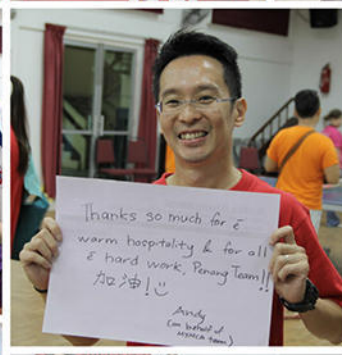 Thanks so much for ē
warm hospitality & for all
ē hard work, Penang Team!!
加油!
Andy
(on behalf of
team)